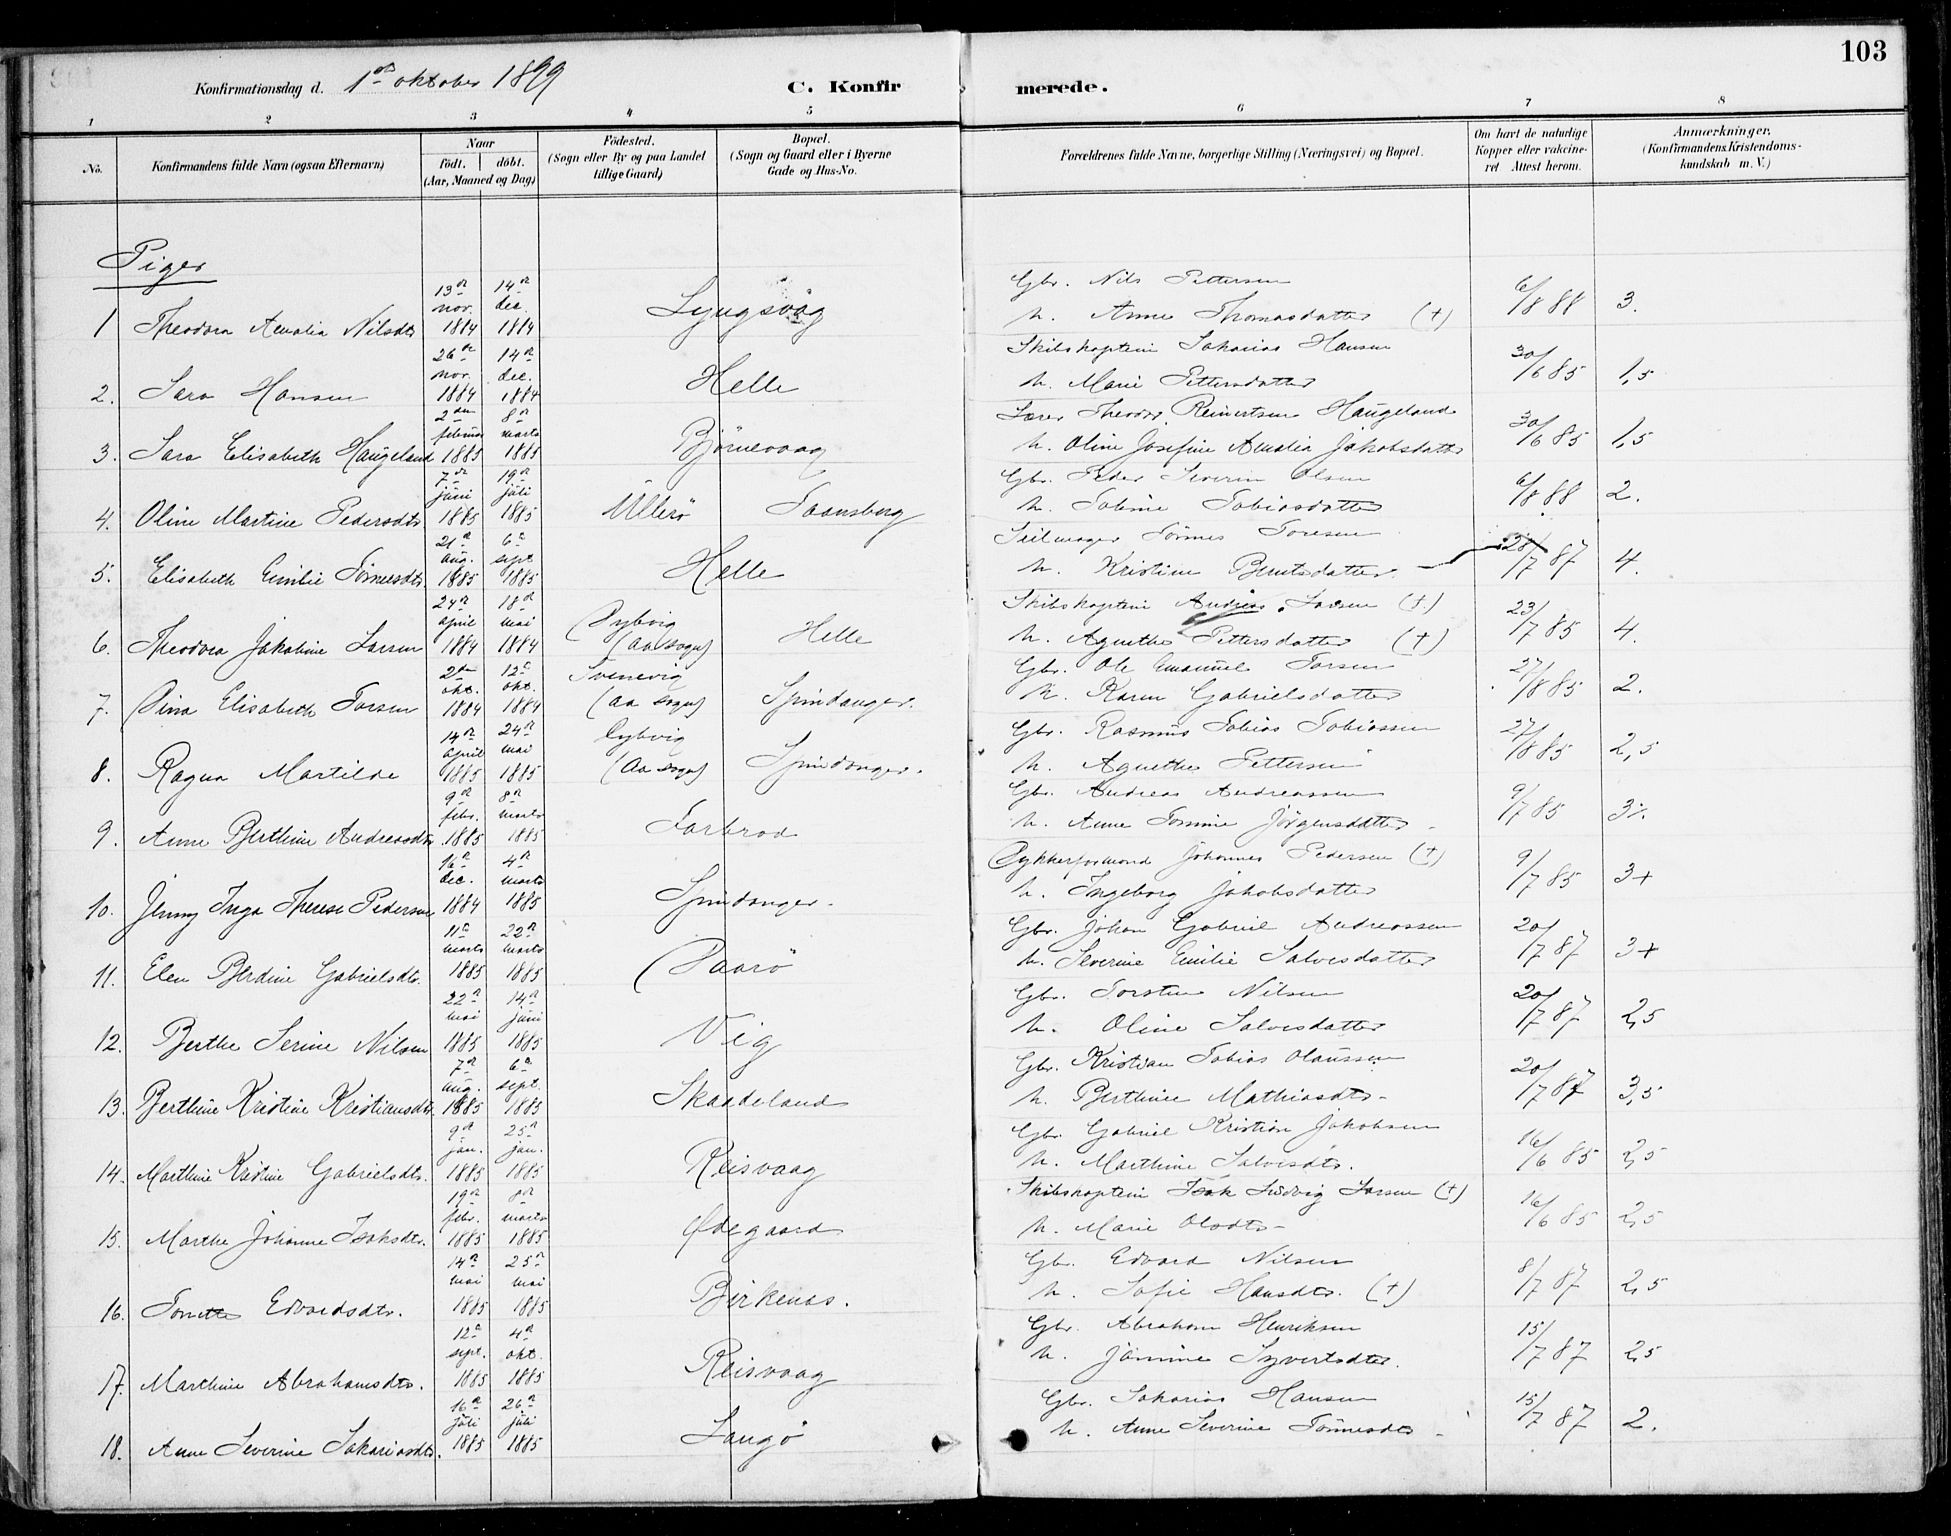 103
Konfirmationsdag d. 1ste oktober 1899
C. Konfirmerede.
1 2 3 4 5 6 7 8
No.
Konfirmandens fulde Navn (ogsaa Efternavn)
Naar
födt. döbt.
(Aar, Maaned og Dag)
Födested.
(Sogn eller By og paa Landet
tillige Gaard)
Bopæl.
(Sogn og Gaard eller i Byerne
Gade og Hus-No.
Forældrenes fulde Navne, borgerlige Stilling (Næringsvei) og Bopæl.
Om havt de naturlige
Kopper eller vaccine-
ret Attest herom.
Anmærkninger.
(Konfirmandens Kristendoms-
kundskab m. V.)
Piger
1 Theodora Amalia Nilsdtr 13de nov. 1884 14de dec. 1884 Lyngsvåg Gbr. Nils Pettersen
h. Anne Thomasdatter (+) 6/8 88 3.
2. Sara Hansen 26de nov. 1884 14de dec. 1884 Helle Skibskaptein Sakarias Hansen
h. Marie Pettersdatter 30/6 85 1,5
3. Sara Elisabeth Haugeland 2den februar 1885 8de marts 1885 Björnevaag Lærer Theodor Reinertsen Haugeland
h. Oline Josefine Amalia Jakobsdatter 30/6 85 1,5
4. Oline Martine Pedersdtr 7de juni 1885 19de juli 1885 Ullerö Saansberg Gbr. Peder Severin Olsen
h. Tobine Tobiasdatter 6/8 88 2.
5. Elisabeth Emilie Tönnesdtr 21de aug. 1885 6te sept. 1885 Helle Seilmager Tönnes Toresen
h. Kristine Berntsdatter 28/7 87 4.
6. Theodora Jakobine Larsen 24de april 1884 18de mai 1884 Pybvig (Aa sogn) Helle Skibskaptein Andreas Larsen (+)
h. Agnethe Pettersdatter (+) 23/7 85 4.
7. Dina Elisabeth Torsen 2den okt. 1884 12te okt. 1884 Svenevig (Aa sogn) Spindanger. Gbr. Ole Emanuel Torsen
h. Karen Gabrielsdatter 27/8 85 2.
8. Ragna Martilde 14de april 1885 24de mai 1885 Pybvig (Aa sogn) Spindanger. Gbr. Rasmus Tobias Tobiassen
h. Agnethe Pettersen 27/8 85 2,5
9. Anne Berthine Andreasdtr. 9de febr. 1885 8de marts 1885 Farbrod Gbr. Andreas Andreassen
h. Anne Tomine Jörgensdatter 9/7 85 3÷
10. Jenny Inga Therese Pedersen 16de dec. 1884 4de marts 1885 Spindanger. Dykkerformand Johannes Pedersen (+)
h. Ingeborg Jakobsdatter 9/7 85 3+
11. Elen Berdine Gabrielsdtr. 11te marts 1885 22de marts 1885 Paarö Gbr. Johan Gabriel Andreassen
h. Severine Emilie Salvesdatter 20/7 87 3+
12. Berthe Serine Nilsen 22de mai 1885 14de juni 1885 Vig Gbr. Torsten Nilsen
h. Oline Salvesdatter 20/7 87 2,5
13. Berthine Kristine Kristiansdtr. 7de aug. 1885 6te sept. 1885 Skaadeland Gbr. Kristian Tobias Olaussen
h. Berthine Mathiasdtr. 20/7 87 3,5
14. Marthine Kristine Gabrielsdtr. 9de jan. 1885 25de jan. 1885 Reisvaag Gbr. Gabriel Kristian Jakobsen
h. Marthine Salvesdtr. 16/6 85 2,5
15. Marthe Johanne Isaksdtr. 19de febr. 1885 8de marts 1885 Ødegaard Skibskaptein Isak Ludvig Larsen (+)
h. Marie Olsdtr. 16/6 85 2,5
16. Tonette Edvardsdtr. 14de mai 1885 25de mai 1885 Birkenes. Gbr. Edvard Nilsen
h. Sofie Hansdtr. (+) 8/7 87 2,5
17. Marthine Abrahamsdtr. 12te sept. 1885 4de okt. 1885 Reisvaag Gbr. Abraham Henriksen
h. Jömine Syvertsdtr. 15/7 87 2,5
18. Anne Severine Sakariasdtr. 16de juli 1885 26de juli 1885 Langö Gbr. Sakarias Hansen
h. Anne Severine Tönnesdtr 15/7 87 2.